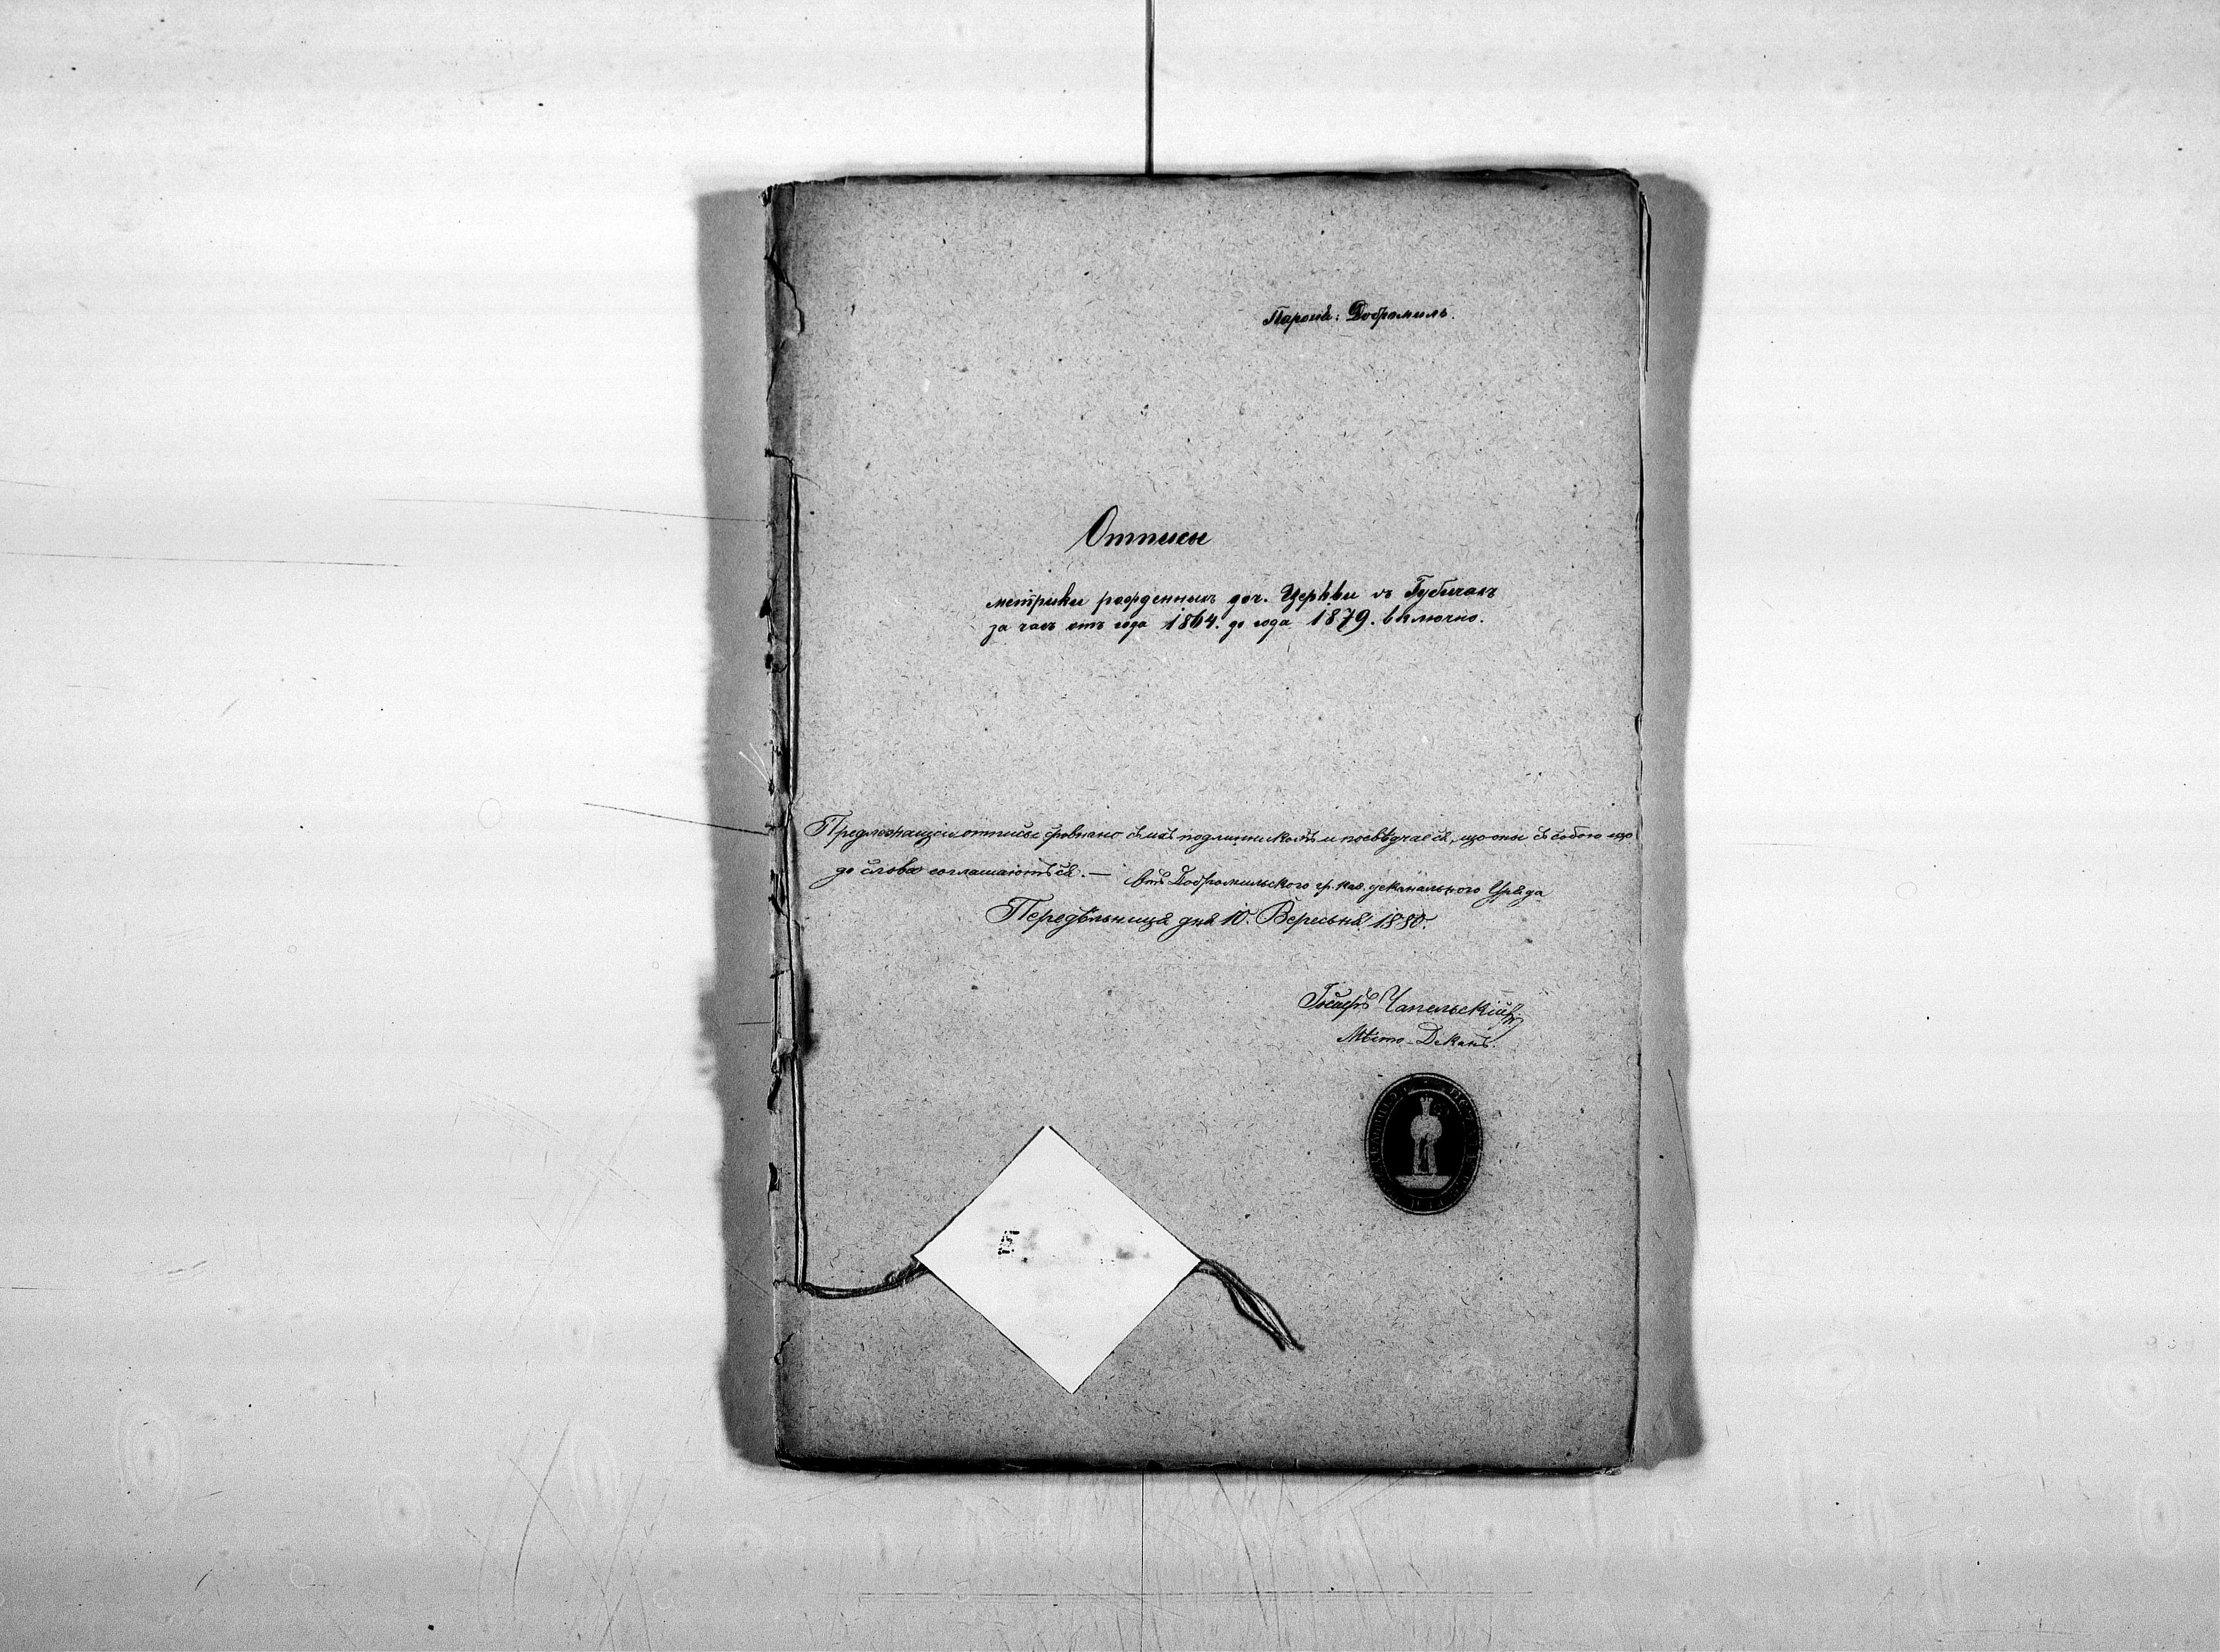 Парохія: Добромиль.
Отписы
метрики рожденныхъ доч. Церкви въ Губичахъ
за часъ отъ года 1864. до года 1879. включно.
Предлежащіи отписы зровнано съ ихъ подлинникомъ и посвѣдчаеся, що оны съ собою що
до слова соглашаютъся. — Отъ Добромильского гр. каѳ. деканального Уряда
Передѣльница дня 10. Вересня 1880.
Іосифъ Чапельскій
Мѣсто-Деканъ.